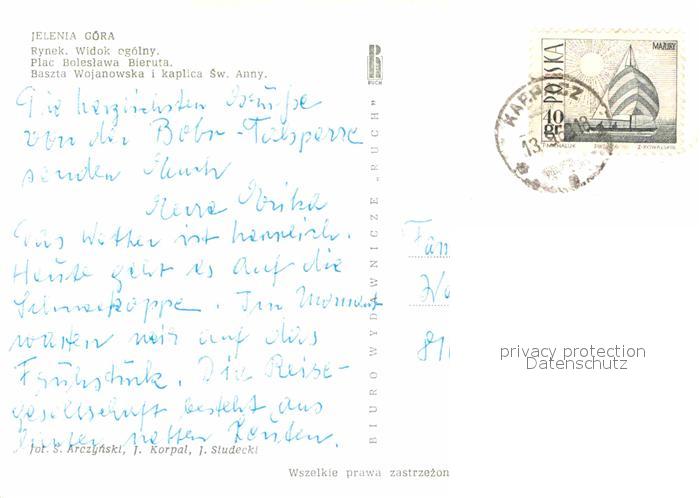 JELENIA GÓRA
Rynek. Widok ogólny.
Plac Bolesława Bieruta.
Baszta Wojanowska i kaplica Św. Anny.
RUCH
MAZURY
POLSKA
40 gr
Die herzlichsten Grüße
von der Bober-Talsperre
senden Euch
Das Wetter ist herrlich.
Heute geht es auf die
Schneekoppe. Im Moment
warten wir auf das
Frühstück. Die Reise-
gesellschaft besteht aus
lauter netten Leuten.
BIURO WYDAWNICZE „RUCH”
fot. S. Arczyński, J. Korpal, J. Siudecki
Wszelkie prawa zastrzeżon
Fam
privacy protection
Datenschutz